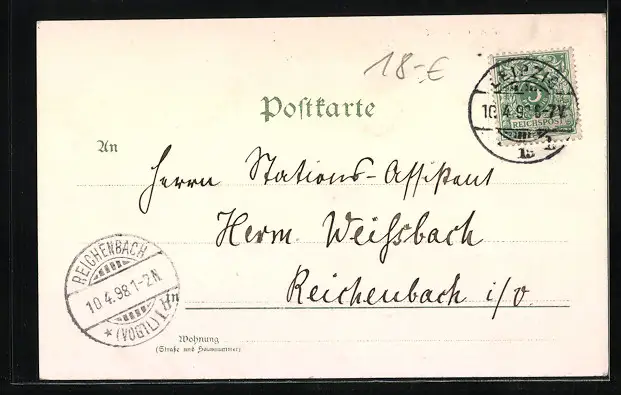 18.-€
LEIPZIG
10.4.98.1-7N
13
5
REICHSPOST
Postkarte
An
Herrn Stations-Assistent
Herm. Weissbach
Reichenbach i/v.
in
REICHENBACH
10.4.98.1-2N
* (VOGTL)
Wohnung
(Straße und Hausnummer)